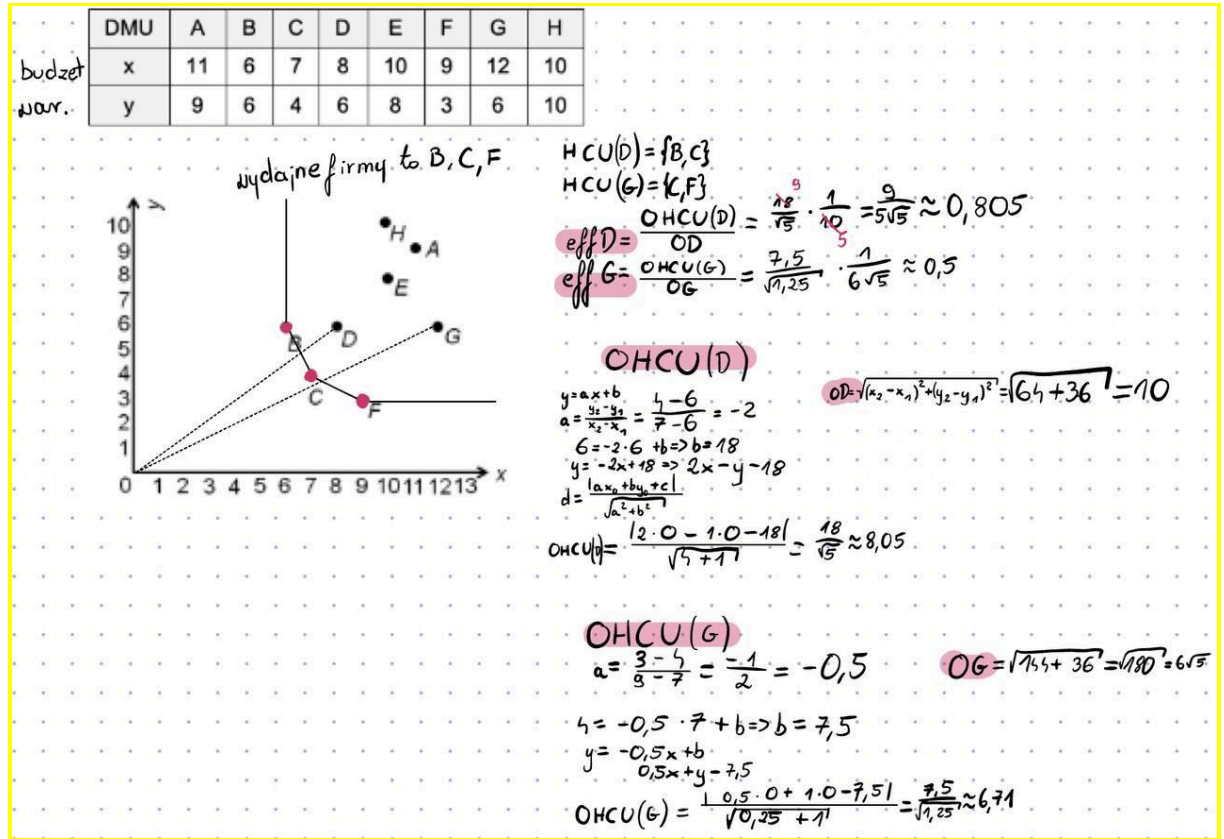 DMU A B C D E F G H
budżet x 11 6 7 8 10 9 12 10
war. y 9 6 4 6 8 3 6 10
wydajne firmy to B, C, F
y
10
9
8
7
6
5
4
3
2
1
H
A
E
B
D
G
C
F
x
0 1 2 3 4 5 6 7 8 9 10 11 12 13
HCU(D) = {B,C}
HCU(G) = {C,F}
eff D = OHCU(D)/OD = 18/√5 · 1/10 = 9/5√5 ≈ 0,805
9
5
eff G = OHCU(G)/OG = 7,5/√1,25 · 1/6√5 ≈ 0,5
OHCU(D)
y=ax+b
a = y₂-y₁/x₂-x₁ = 4-6/7-6 = -2
6=-2·6 +b => b=18
y= -2x+18 => 2x-y-18
d = |ax₀+by₀+c|/√a²+b²
OHCU(D) = |2·0 - 1·0 - 18|/√4+1 = 18/√5 ≈ 8,05
OD=√(x₂-x₁)²+(y₂-y₁)² = √64+36 = 10
OHCU(G)
a = 3-4/9-7 = -1/2 = -0,5
4 = -0,5 · 7 + b => b = 7,5
y = -0,5x+b
0,5x+y-7,5
OHCU(G) = |0,5·0 + 1·0 - 7,5|/√0,25 + 1 = 7,5/√1,25 ≈ 6,71
OG = √144+36 = √180 = 6√5